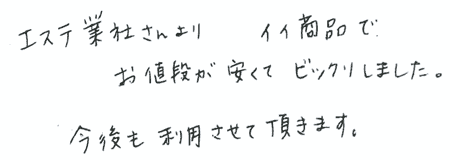 エステ業社さんより　イイ商品で
お値段が安くて ビックリしました。
今後も利用させて頂きます。